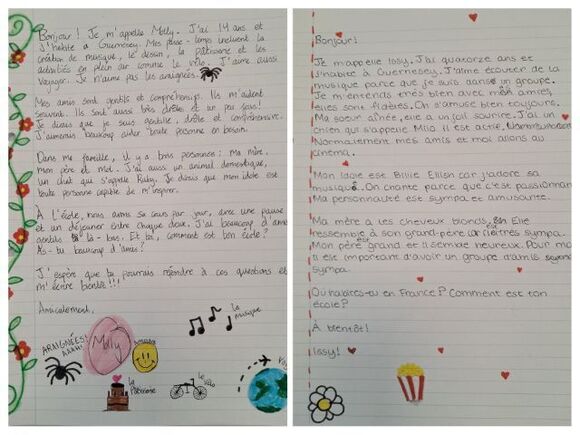 Bonjour! Je m'appelle Molly. J'ai 14 ans et
j'habite à Guernesey. Mes passe-temps incluent la
création de musique, le dessin, la pâtisserie et les
activités en plein air comme le vélo. J'aime aussi
voyager. Je n'aime pas les araignées.
Mes amis sont gentils et compréhensifs. Ils m'aident
souvent. Ils sont aussi très drôles et un peu fous!
Je dirais que je suis gentille, drôle et compréhensive.
J'aimerais beaucoup aider toute personne en besoin.
Dans ma famille, il y a trois personnes: ma mère,
mon père et moi. J'ai aussi un animal domestique,
un chat qui s'appelle Ruby. Je dirais que mon idole est
toute personne capable de m'inspirer.
À l'école, nous avons six cours par jour, avec une pause
et un déjeuner entre chaque deux. J'ai beaucoup d'amis
gentils là-bas. Et toi, comment est ton école?
As-tu beaucoup d'amis?
J'espère que tu pourrais répondre à ces questions et
m'écrire bientôt!!!
Amicalement,
Molly
ARAIGNÉES!
AAAH!
la musique
la pâtisserie
le vélo
Bonjour!
Je m'appelle Issy. J'ai quatorze ans et
j'habite à Guernesey. J'aime écouter de la
musique parce que je suis dans un groupe.
Je m'entends très bien avec mes amies,
elles sont fidères. On s'amuse bien toujours.
Ma soeur aînée, elle a un joli sourire. J'ai un
chien qui s'appelle Milo il est actif.
Normalement mes amis et moi allons au
cinema.
Mon idole est Billie Eilish car j'adore sa
musique. On chante parce que c'est passionnant
Ma personnalité est sympa et amusante.
Ma mère a les cheveux blonds, Elle
ressemble à son grand-père, très sympa.
Mon père est grand et il semble heureux. Pour moi
il est important d'avoir un groupe d'amis
sympa.
Où habites-tu en France? Comment est ton
école?
À bientôt!
Issy!